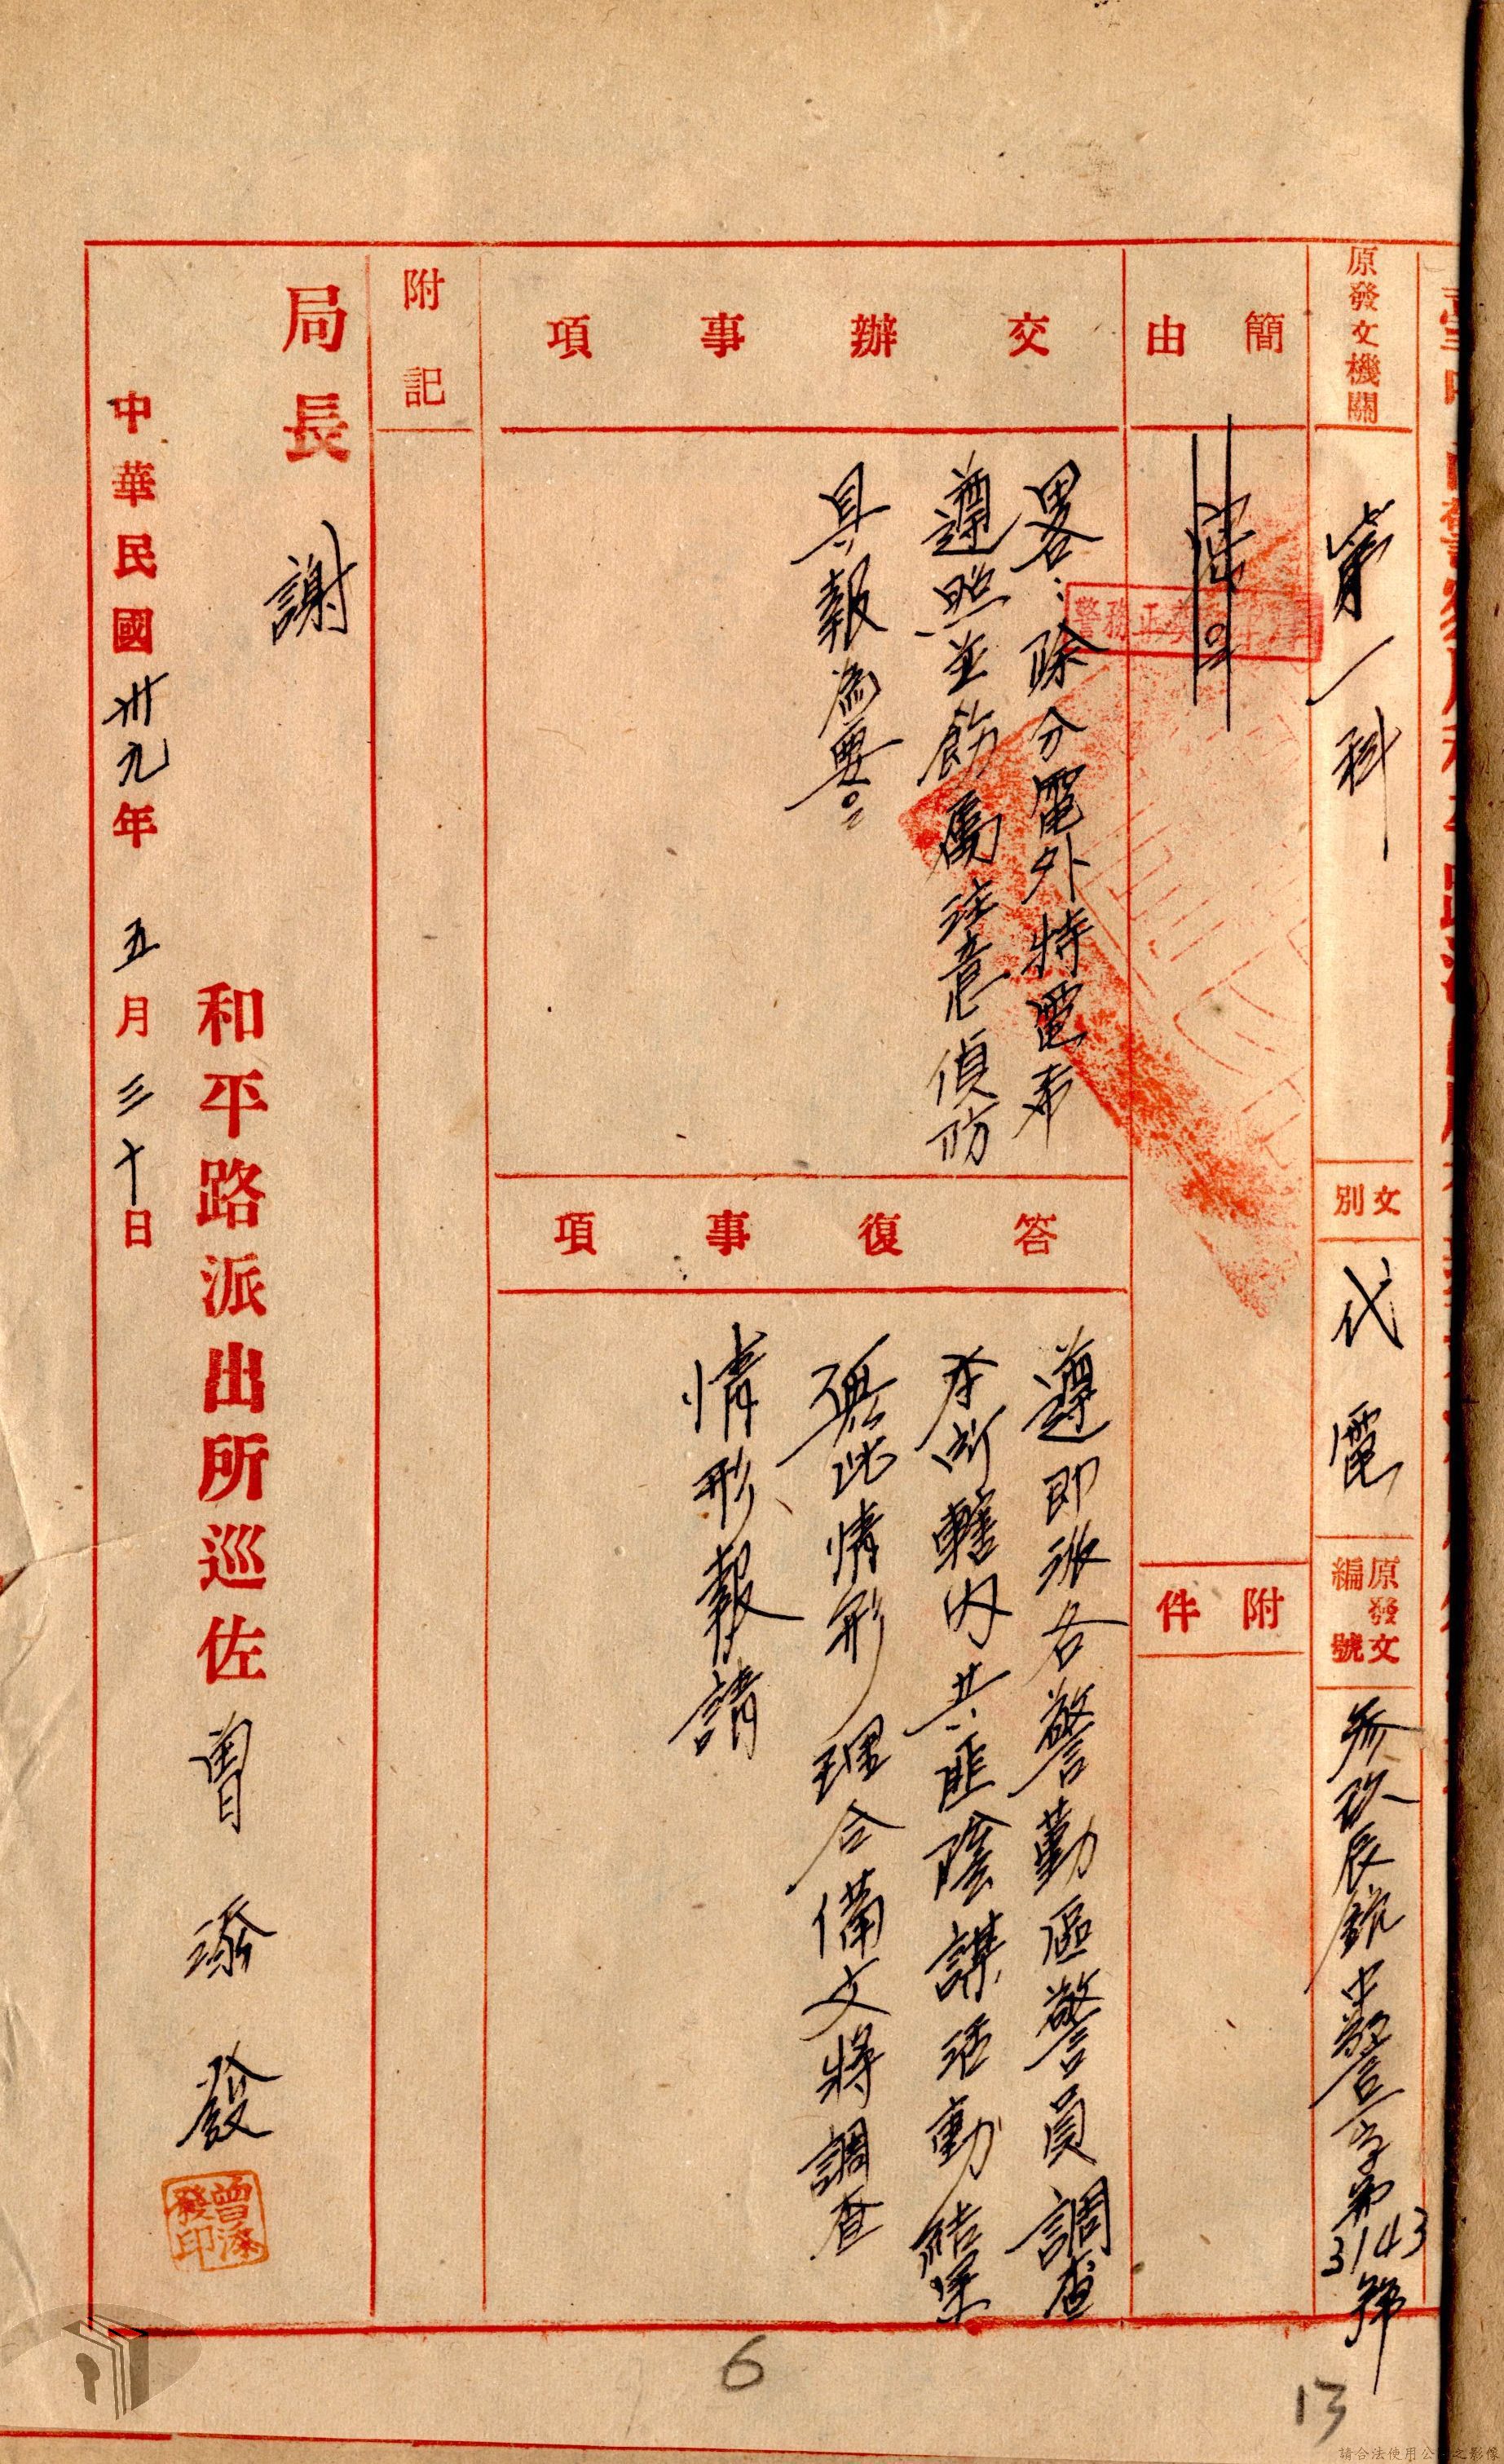 原發文機關
第一科
文別
代電
原發文編號
參玖辰銑中警一字第3143號
簡由
附件
交辦事項
畧：除分電外特電希
遵照並飭屬注意偵防
具報為要
答復事項
遵即派各警勤區警員調查
本所轄內共匪陰謀活動結果
無此情形理合備文將調查
情形報請
附記
局長 謝
和平路派出所巡佐 曾添發
曾添發印
中華民國卅九年五月三十日
6
13
請合法使用公開之影像